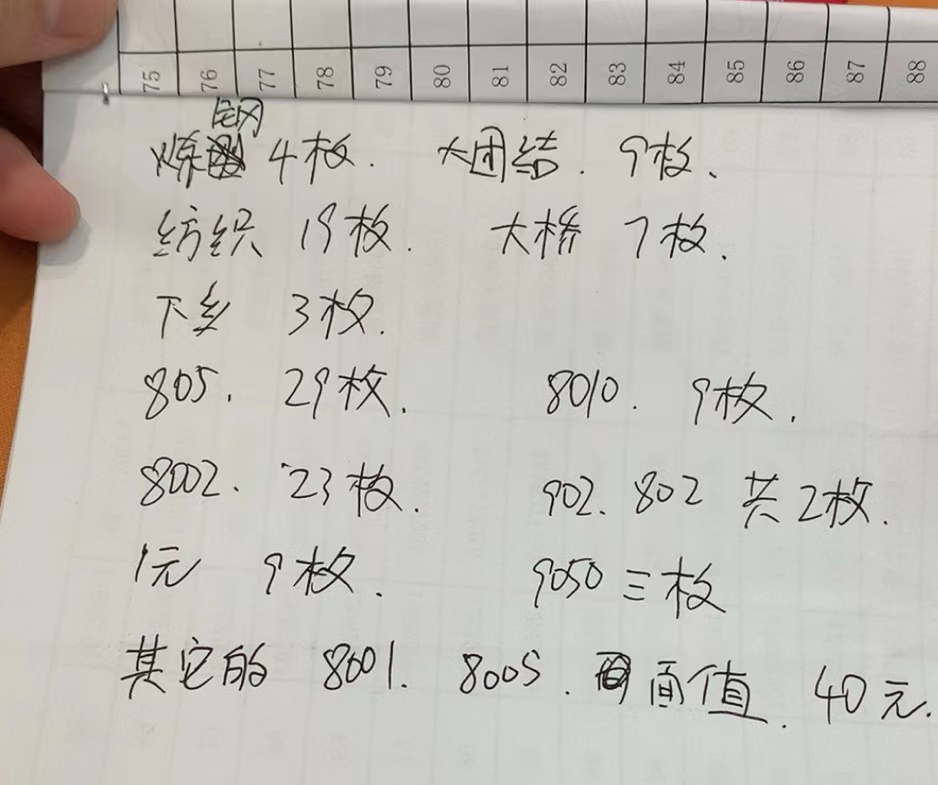 75 76 77 78 79 80 81 82 83 84 85 86 87 88
炼钢 4枚. 大团结. 9枚.
纺织 19枚. 大桥 7枚.
下乡 3枚.
805. 29枚. 8010. 9枚.
8002. 23枚. 902. 802 共2枚.
1元 9枚. 9050 三枚
其它的 8001. 8005. 面值. 40元.